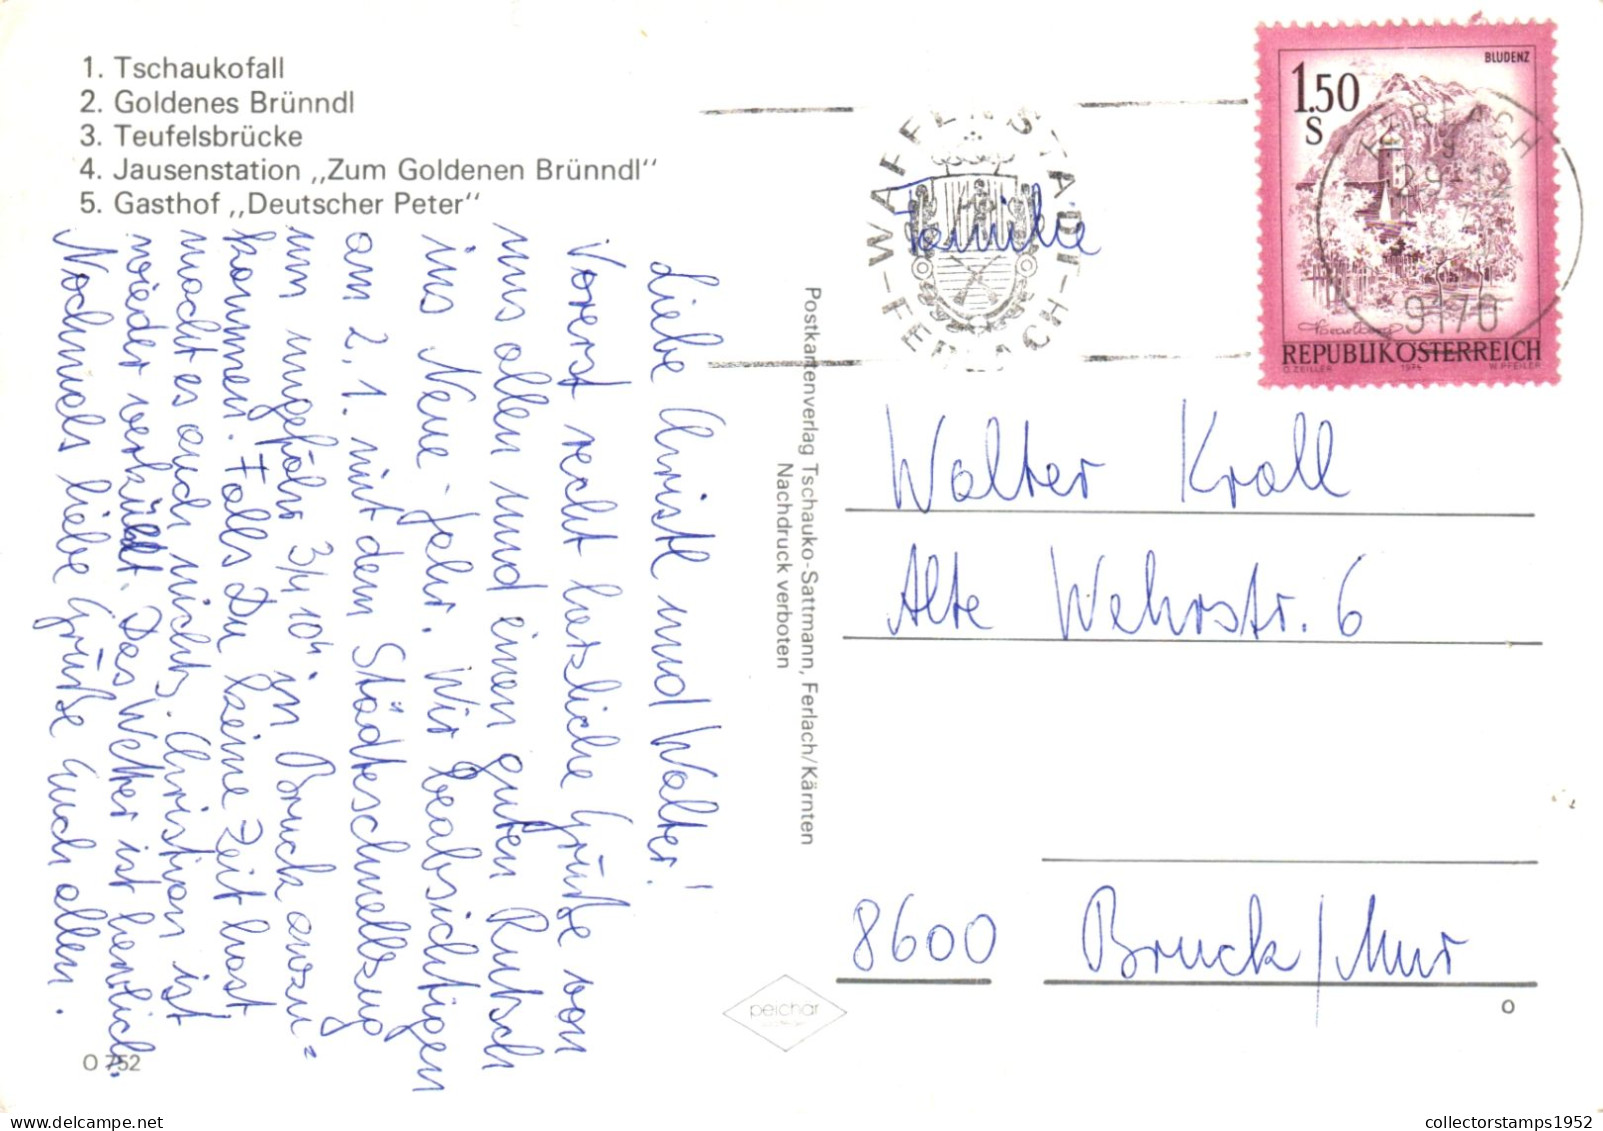 1. Tschaukofall
2. Goldenes Brünndl
3. Teufelsbrücke
4. Jausenstation „Zum Goldenen Brünndl"
5. Gasthof „Deutscher Peter"
Liebe Christl und Walter!
Vorerst recht herzliche Grüße von
uns allen und einen guten Rutsch
ins Neue Jahr. Wir beabsichtigen
am 2. 1. mit dem Städteschnellzug
um ungefähr 3/4 10h in Bruck anzu=
kommen. Falls Du keine Zeit hast
macht es auch nichts. Christian ist
wieder verkühlt. Das Wetter ist herrlich.
Nochmals liebe Grüße Euch allen.
O 752
Postkartenverlag Tschauko-Sattmann, Ferlach/Kärnten
Nachdruck verboten
peichar
WAFFENSTADT
FERLACH
BLUDENZ
1.50
S
FERLACH
29-12
9170
REPUBLIK ÖSTERREICH
O. ZEILLER 1974 W. PFEILER
Familie
Walter Kroll
Alte Wehrstr. 6
8600 Bruck/Mur
O
collectorstamps1952